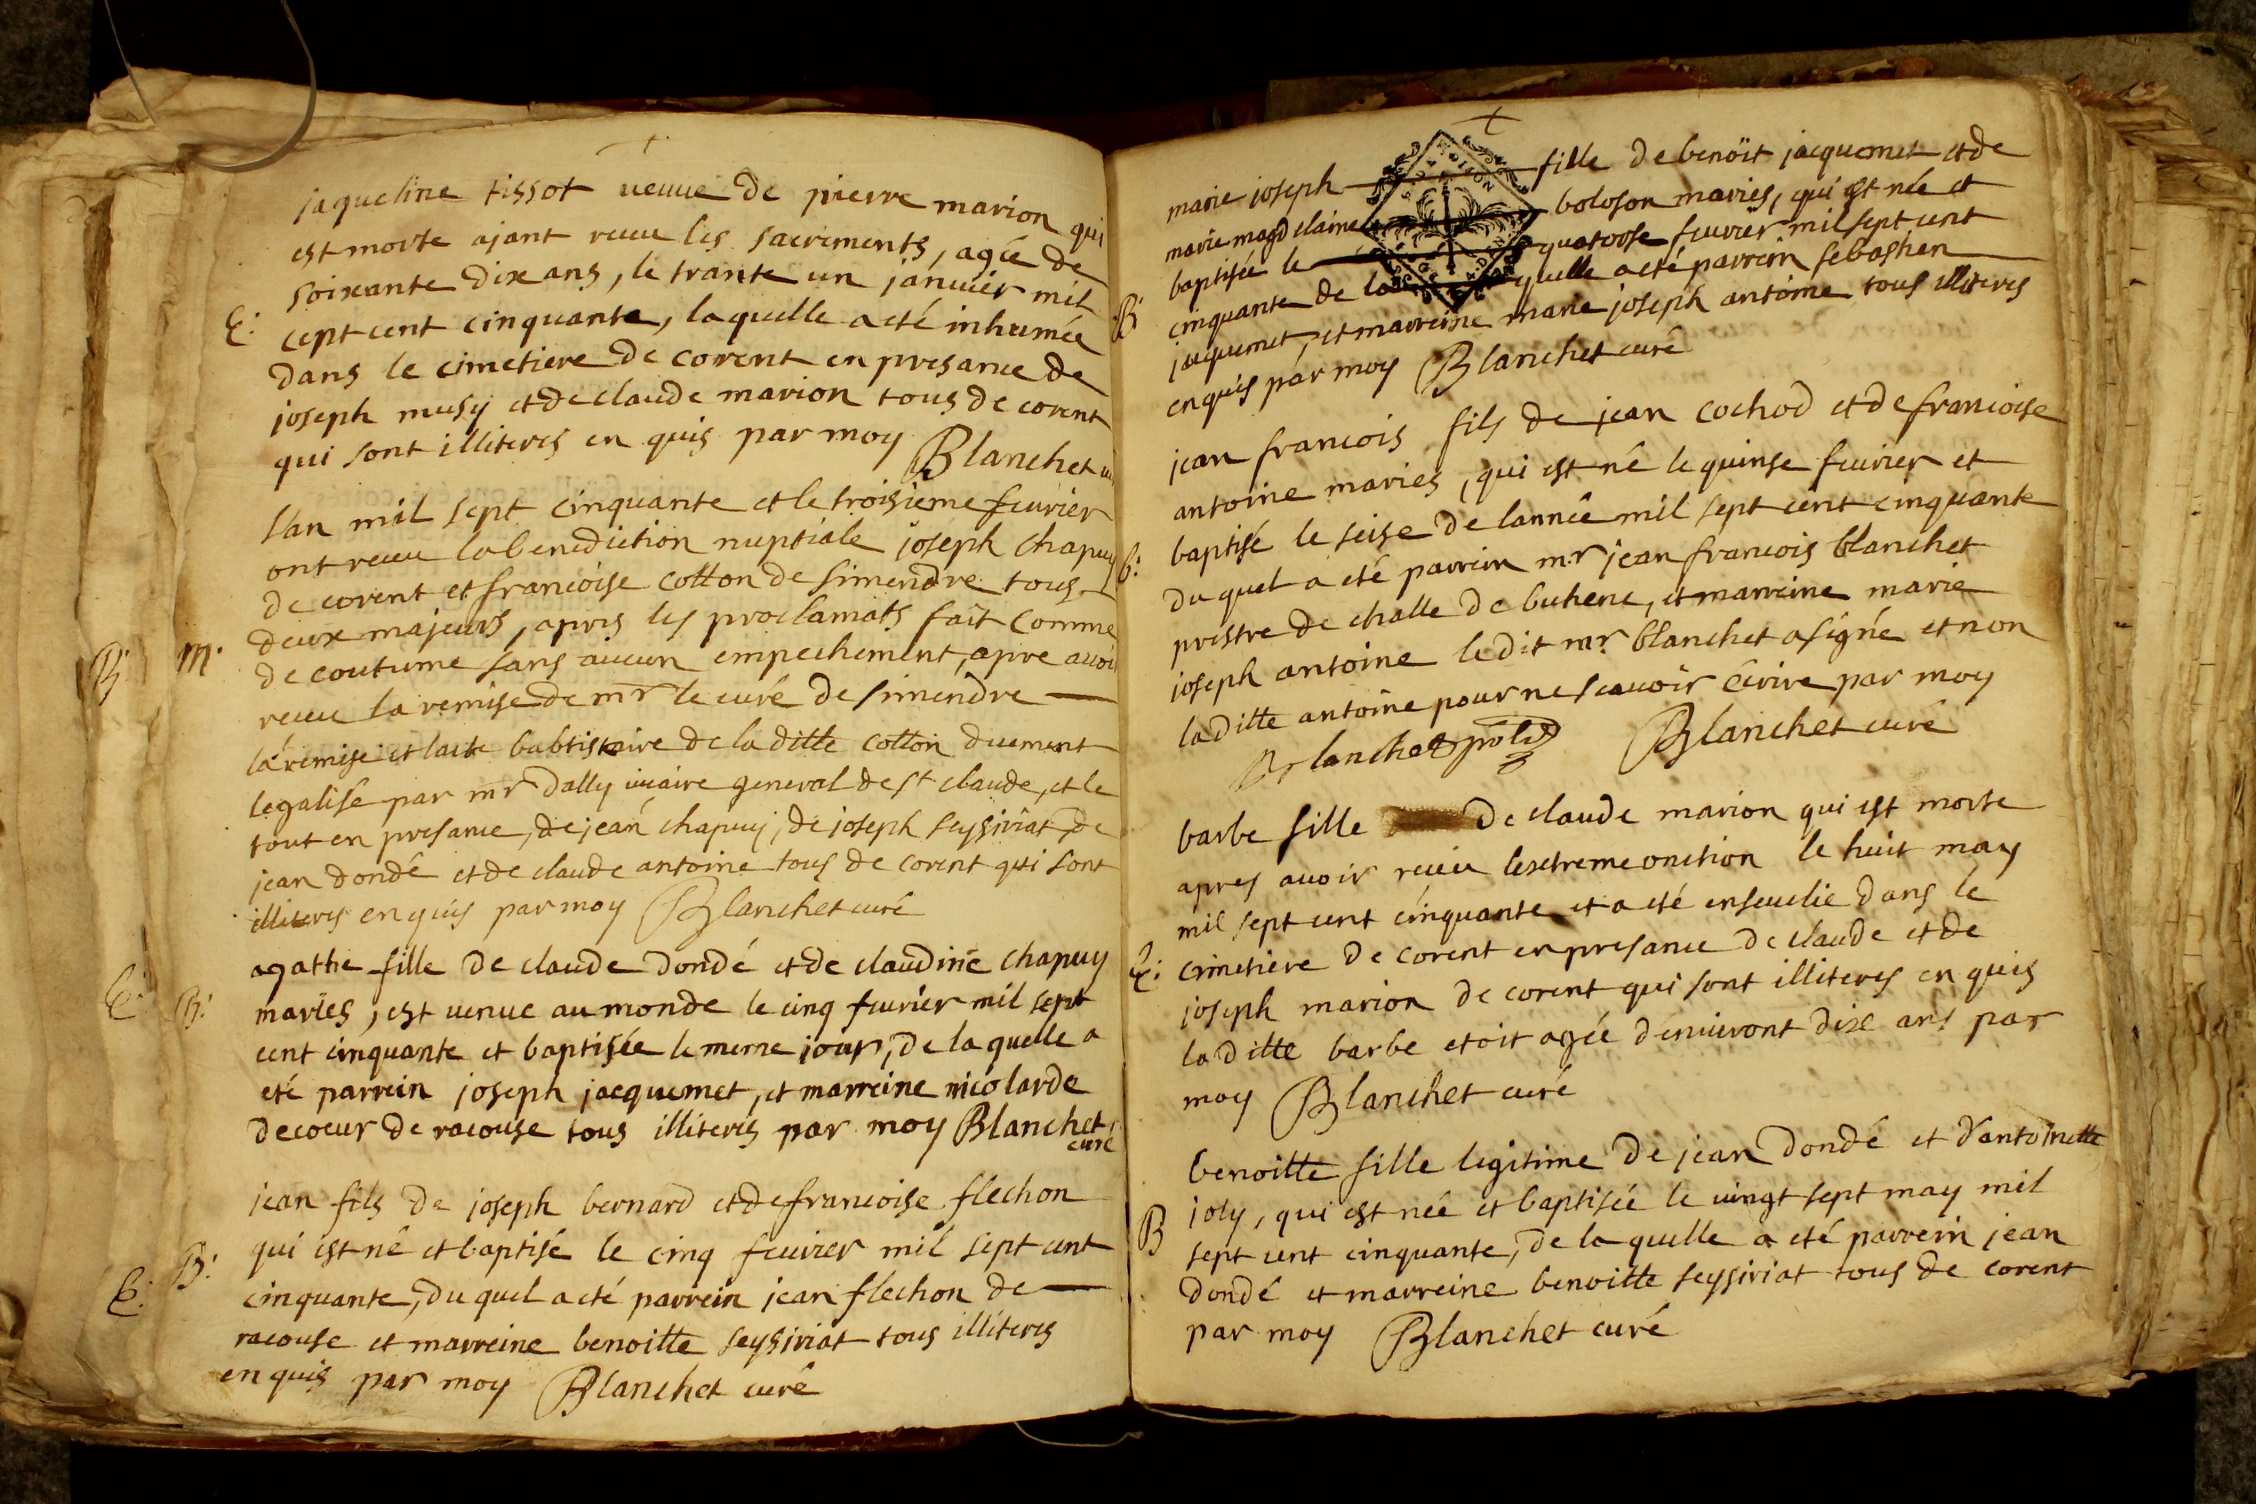 jaqueline tissot veuve de pierre marion qui
est morte ajant receu les sacrements, agée de
soixante dix ans, le trante un janvier mil
E. cept cent cinquante, laquelle a eté inhumée
dans le cimetiere de corent en presance de
joseph musy et de claude marion tous de corent
qui sont illiteres en quis par moy Blanchet
l'an mil sept cinquante et le troisieme feuvrier
ont receu la benediction nuptiale joseph chapuy
de corent et francoise cotton de simendre tous
deux majeurs, apres les proclamats fait comme
M. de coutume sans aucun empechement, apre avoir
receu la remise de mr le curé de simendre
la remise et lacte babtistaire de la ditte cotton duement
legalisé par mr dally vicaire general de st claude, et le
tout en presance, de jean chapuy, de joseph seysiriat de
jean dondé et de claude antoine tous de corent qui sont
illiteres en quis par moy Blanchet curé
agathe fille de claude dondé et de claudine chapuy
B. mariés, est venue au monde le cinq feuvrier mil sept
cent cinquante et baptisée le meme jour, de la quelle a
eté parrein joseph jacquemet, et marreine nicolarde
decoeur de racouse tous illiteres par moy Blanchet
curé
jean fils de joseph bernard et de francoise flechon
B. qui est né et baptisé le cinq feuvrier mil sept cent
cinquante, du quel a eté parrein jean flechon de
racouse et marreine benoitte seysiriat tous illiteres
en quis par moy Blanchet curé
B.
E.
E.
marie joseph fille de benoit jacquemet et de
marie magdelaine boloson mariés, qui est née et
baptisée le quatorse feuvrier mil sept cent
B. cinquante de la quelle a eté parrein sebastien
jacquemet, et marreine marie joseph antoine tous illiteres
en quis par moy Blanchet curé
jean francois fils de jean cochod et de francoise
antoine mariés, qui est né le quinse feuvrier et
B. baptisé le seise de lannée mil sept cent cinquante
du quel a eté parrein mr jean francois blanchet
prestre de challe de buhene, et marreine marie
joseph antoine le dit mr blanchet a signé et non
la ditte antoine pour ne scavoir écrire par moy
Blanchet Blanchet curé
barbe fille de claude marion qui est morte
apres avoir receu lextreme onction le huit may
mil sept cent cinquante et a eté ensevelie dans le
E. cimetiere de corent en presance de claude et de
joseph marion de corent qui sont illiteres en quis
la ditte barbe etoit agée d'environt dix ans par
moy Blanchet curé
benoitte fille legitime de jean dondé et d'antoinette
B joly, qui est née et baptisée le vingt sept may mil
sept cent cinquante, de la quelle a eté parrein jean
dondé et marreine benoitte seysiriat tous de corent
par moy Blanchet curé